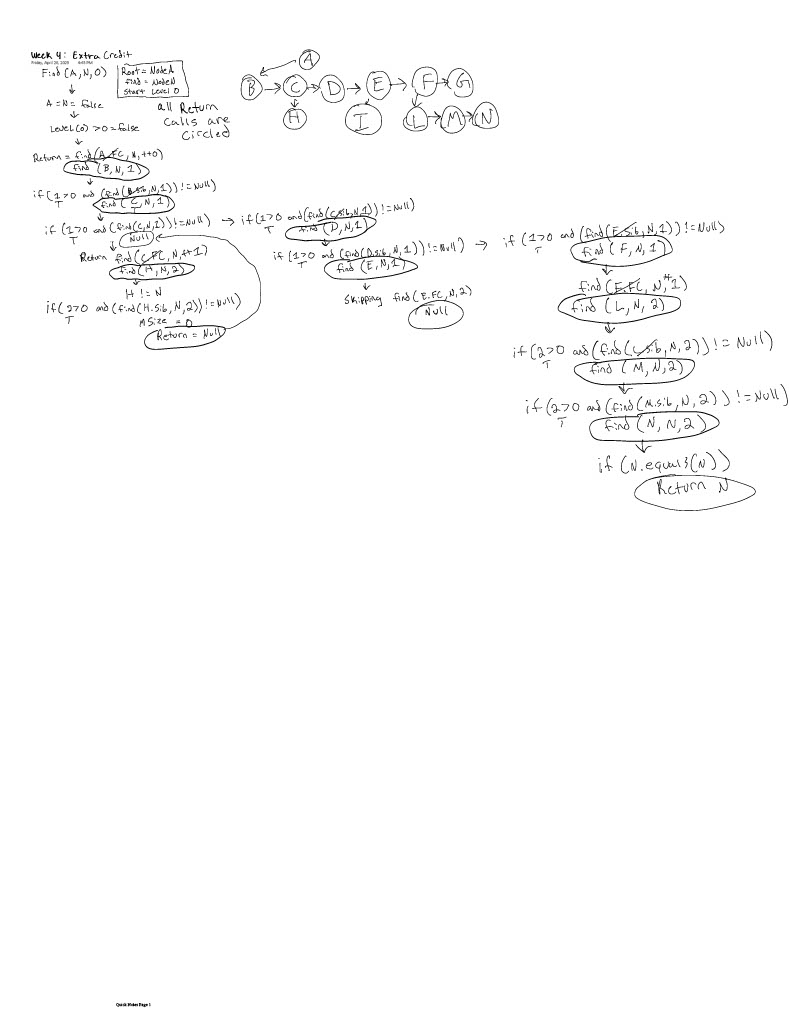 Week 4: Extra Credit
Friday, April 24, 2020 4:45 PM
Find (A, N, 0)
Root = Node A
find = Node N
Start Level 0
A = N = false
Level(0) > 0 = false
all Return
calls are
circled
A
B C D E F G
H I L M N
Return = find(A.FC, N, ++0)
find (B, N, 1)
if (1>0 and (find(B.sib, N, 1)) != Null)
T
find (C, N, 1)
if (1>0 and (find(C, N, 1)) != Null)
T
Null
Return find(C.FC, N, ++1)
find(H, N, 2)
H != N
if(2>0 and (find(H.sib, N, 2)) != Null)
T
MSize = 0
Return = Null
if (1>0 and(find(C.sib, N, 1)) != Null)
T
find (D, N, 1)
if (1>0 and (find(D.sib, N, 1)) != Null)
T
find (E, N, 1)
Skipping find(E.FC, N, 2)
Null
if (1>0 and (find(E.sib, N, 1)) != Null)
T
find (F, N, 1)
find(F.FC, N, ++1)
find (L, N, 2)
if (2>0 and (find(L.sib, N, 2)) != Null)
T
find (M, N, 2)
if (2>0 and (find(M.sib, N, 2)) != Null)
T
find (N, N, 2)
if (N.equals(N))
Return N
Quick Notes Page 1